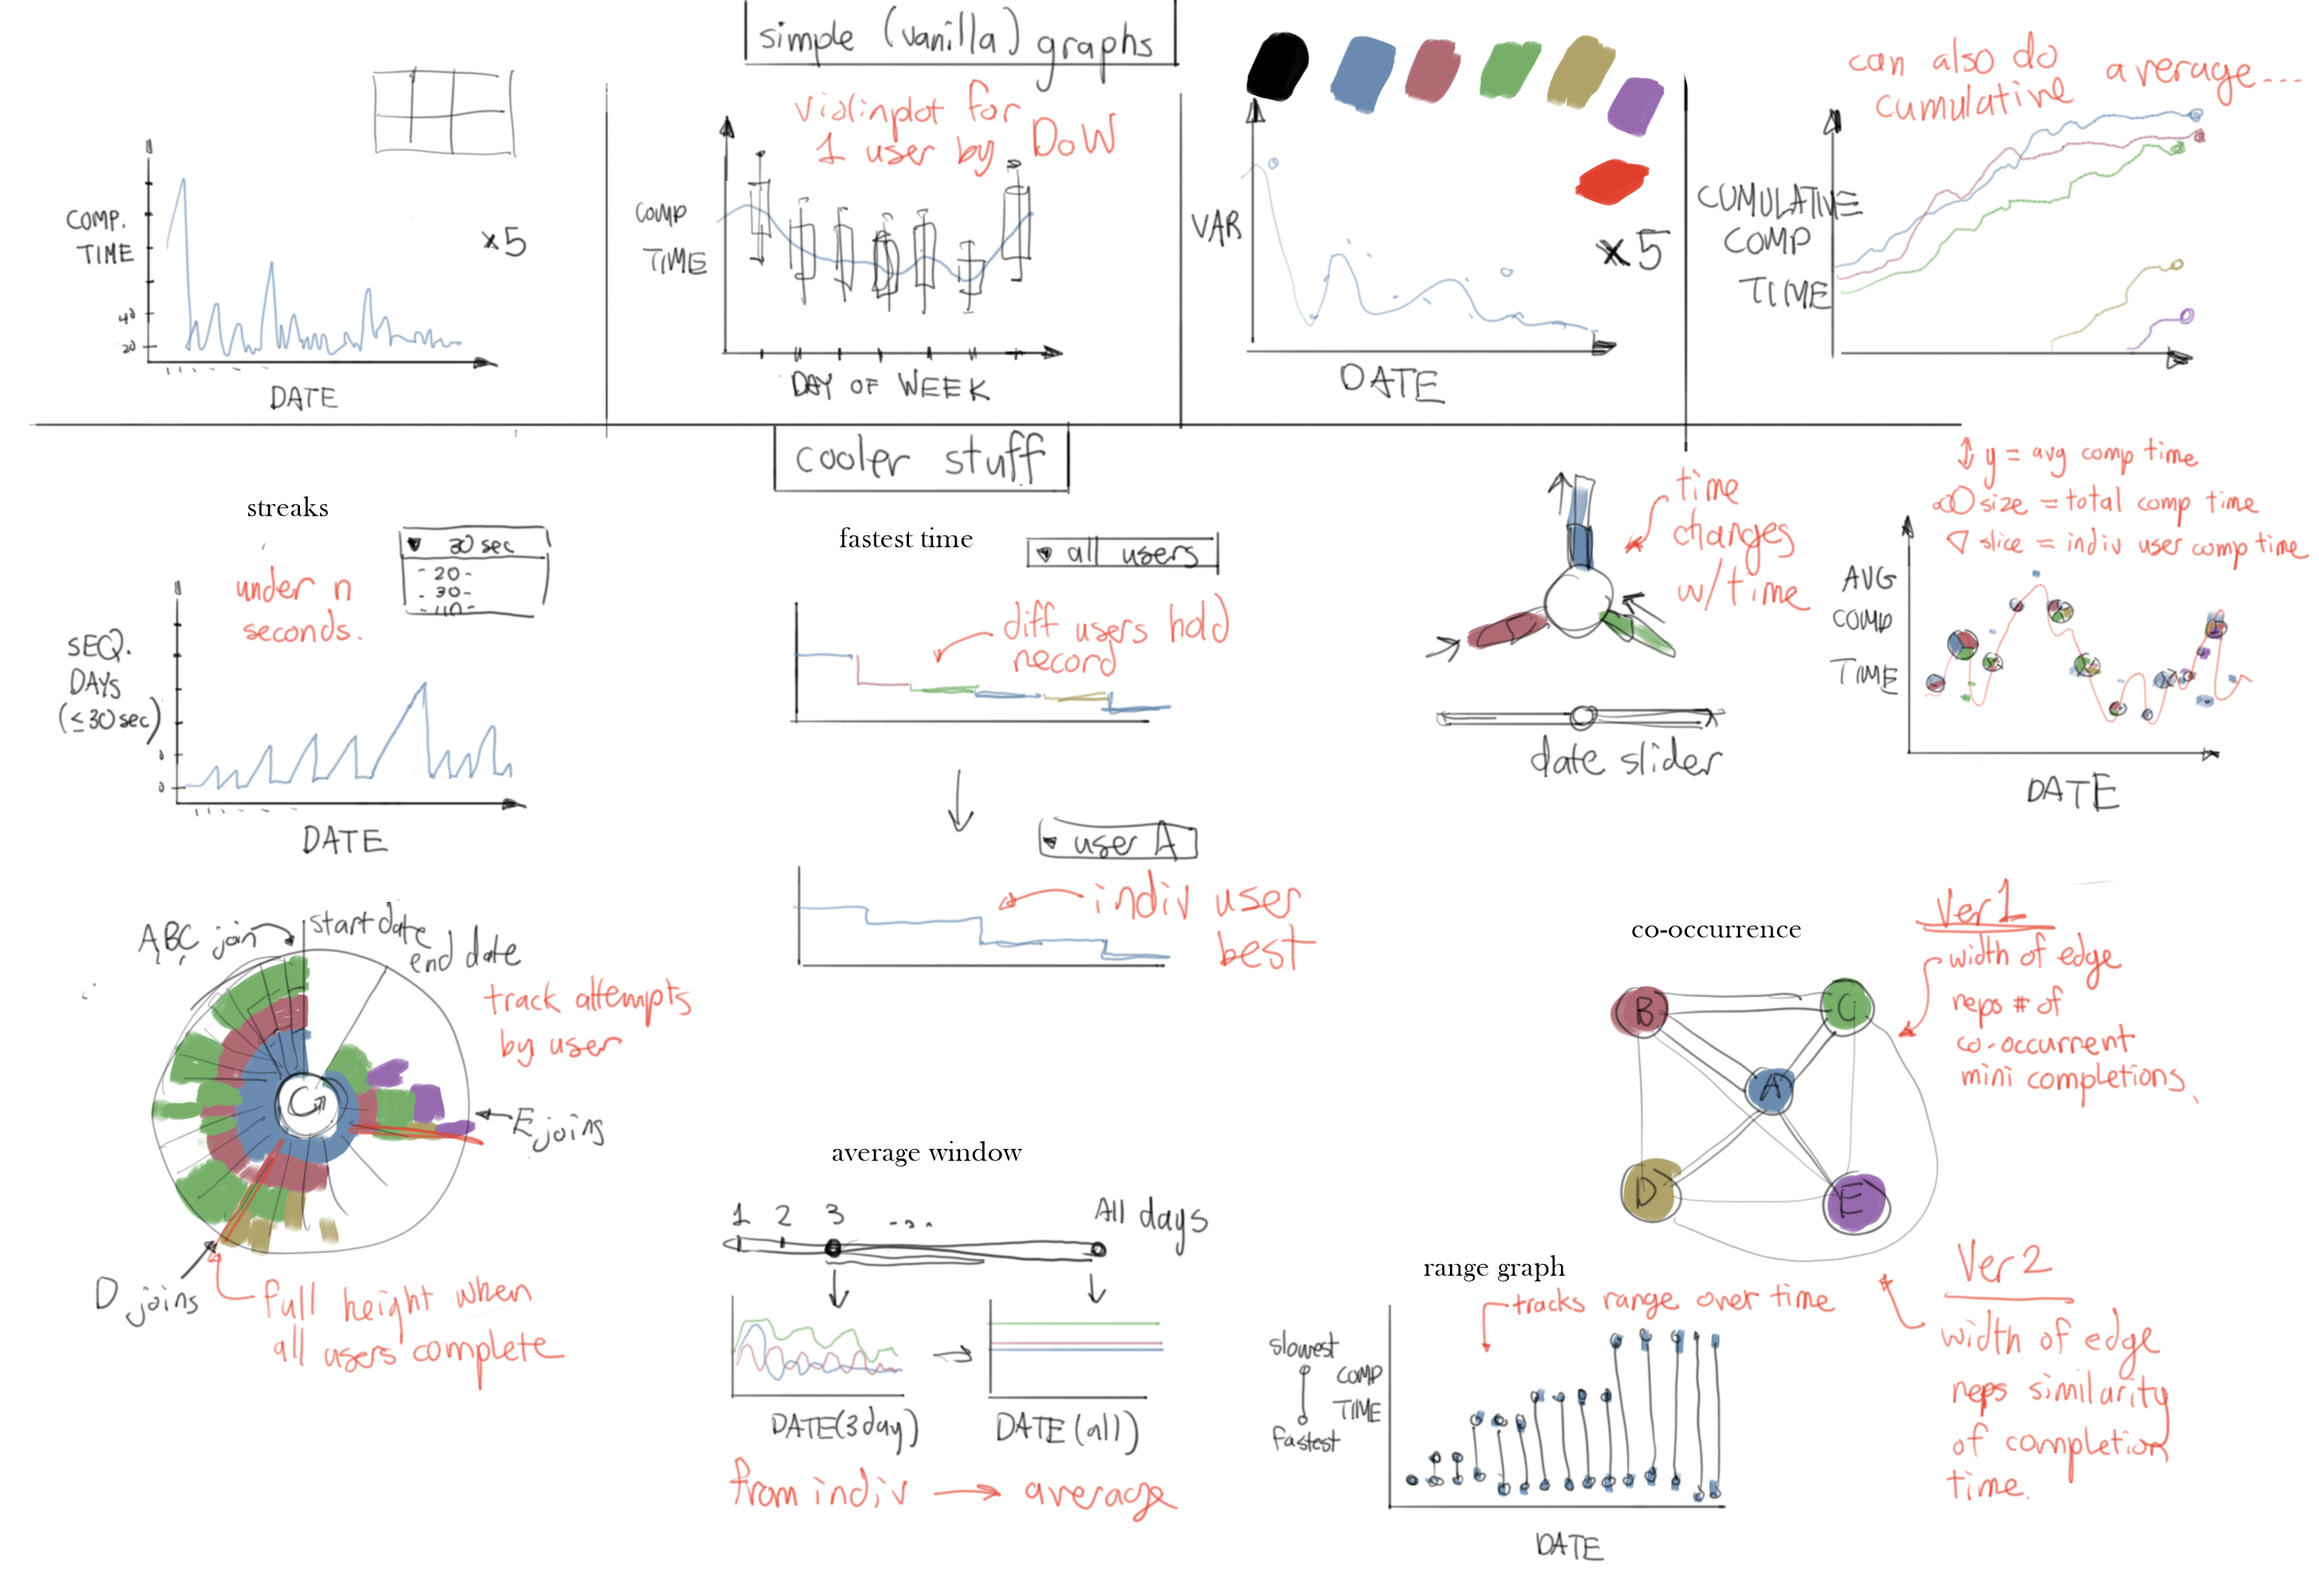 simple (vanilla) graphs
COMP.
TIME
40
20
x5
DATE
violinplot for
1 user by DoW
COMP
TIME
DAY OF WEEK
VAR
x5
DATE
can also do
cumulative average...
CUMULATIVE
COMP
TIME
cooler stuff
streaks
under n
seconds.
▼ 30 sec
- 20 -
- 30 -
SEQ.
DAYS
(≤30sec)
0
0
DATE
fastest time
▼ all users
diff users hold
record
▼ user A
indiv user
best
time
changes
w/ time
date slider
y = avg comp time
size = total comp time
slice = indiv user comp time
AVG
COMP
TIME
DATE
ABC join
start date
end date
track attempts
by user
E joins
D joins
full height when
all users complete
average window
1 2 3 ... All days
DATE(3day)
DATE(all)
from indiv → average
co-occurrence
B
C
A
D
E
Ver 1
width of edge
reps # of
co-occurrent
mini completions.
Ver 2
width of edge
reps similarity
of completion
time.
range graph
tracks range over time
slowest
fastest
COMP
TIME
DATE